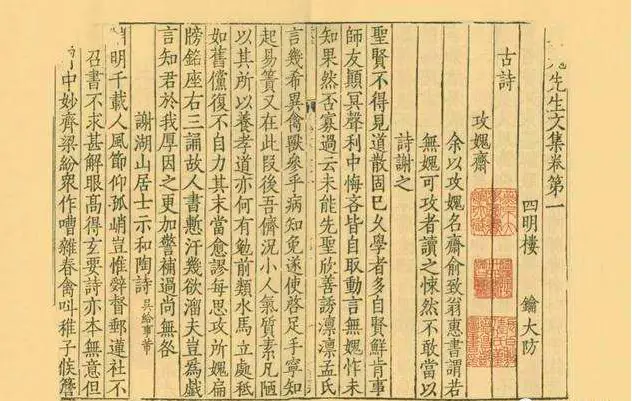 先生文集卷第一
四明樓　鑰大防
古詩
攻媿齋
余以攻媿名齋俞致翁惠書謂若
無媿可攻者讀之悚然不敢當以
詩謝之
聖賢不得見道散固巳久學者多自賢鮮肯事
師友顛冥聲利中悔吝皆自取動言無媿怍未
知果然否寡過云未能先聖欣善誘凛凛孟氏
言幾希異禽獸參乎病知免遂使啓足手寧知
起易簀又在此段後吾儕況小人氣質素凡陋
以其所以養孝道亦何有勉前類水馬立處秪
如舊儻復不自力其末當愈謬每思攻所媿扁
牓銘座右三誦故人書慙汗幾欲溜夫豈爲戲
言知君於我厚因之更加警補過尚無咎
謝湖山居士示和陶詩 吳給事芾
明千載人風節仰孤峭豈惟辭督郵蓮社不
召書不求甚解眼高得玄要詩亦本無意但
中妙齊梁紛衆作嘈雜春禽叫稚子候簷